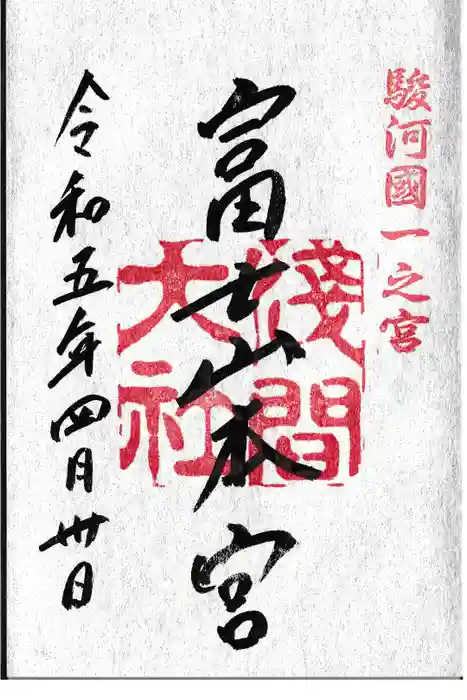 駿河國一之宮
富士山本宮
淺間
大社
令和五年四月卅日